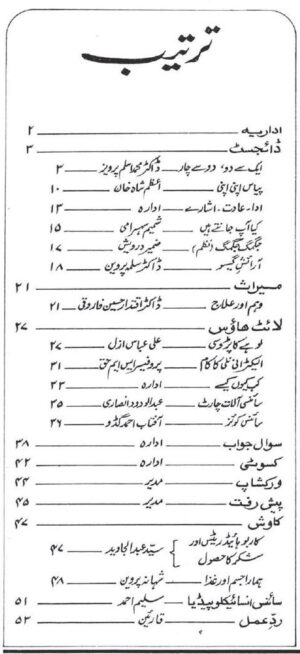 ترتیب
اداریہ ۲
ڈائجسٹ ۳
ایک سے دو، دو سے چار ڈاکٹر محمد اسلم پرویز ۳
پیاس اپنی اپنی اعظم شاہ خان ۱۰
ادا۔ عادت۔ اشارے ادارہ ۱۳
کیا آپ جانتے ہیں شمیم سہسرامی ۱۵
جگمگ جگمگ (نظم) ضمیر درویش ۱۷
آرائش گیسو ڈاکٹر سلمہ پروین ۱۸
میراث ۲۱
وہم اور علاج ڈاکٹر اقتدار حسین فاروقی ۲۱
لائٹ ھاؤس ۲۷
لوہے کا پڑوسی علی عباس ازل ۲۷
الیکٹرانی نلی کا کام پروفیسر ایس ایم حق ۳۱
کب کیوں کیسے ادارہ ۳۳
سائنسی آلات چارٹ عبدالودود انصاری ۳۵
سائنس کوئز آفتاب احمد گڈو ۳۶
سوال جواب ادارہ ۳۸
کسوٹی ادارہ ۴۲
ورکشاپ مدیر ۴۴
پیش رفت مدیر ۴۵
کاوش ۴۷
کاربوہائیڈریٹس اور
شکر کا حصول سید عبدالجاوید ۴۷
ہمارا جسم اور غذا شہانہ پروین ۴۸
سائنسی انسائیکلوپیڈیا سلیم احمد ۵۱
ردِّعمل قارئین ۵۳